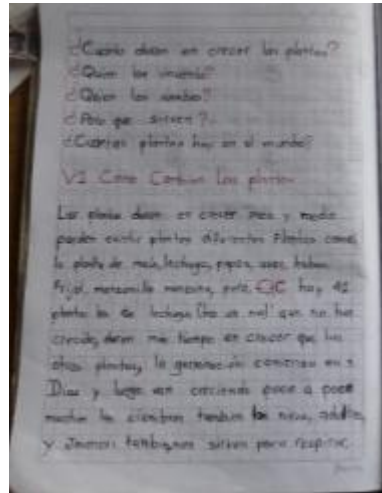 ¿Cuanto duran en crecer las plantas?
¿Quien las inventó?
¿Quien las nombro?
¿Para que sirven?
¿Cuantas plantas hay en el mundo?
V1 Como Cambian Las plantas
Las planta duran en crecer mes y medio
pueden existir plantas diferentes Plantas como
la planta de maiz, lechuga, papa, uvas, habas
Frijol, manzanilla manzana, pera, hay 41
planta la de lechuga que no han
crecido, duran mas tiempo en crecer que las
otras plantas, la germinación comienza en 5
Dias y luego van creciendo poco a poco
tambien los niños, adultos
y Jovenes tambien, nos sirven para respirar.